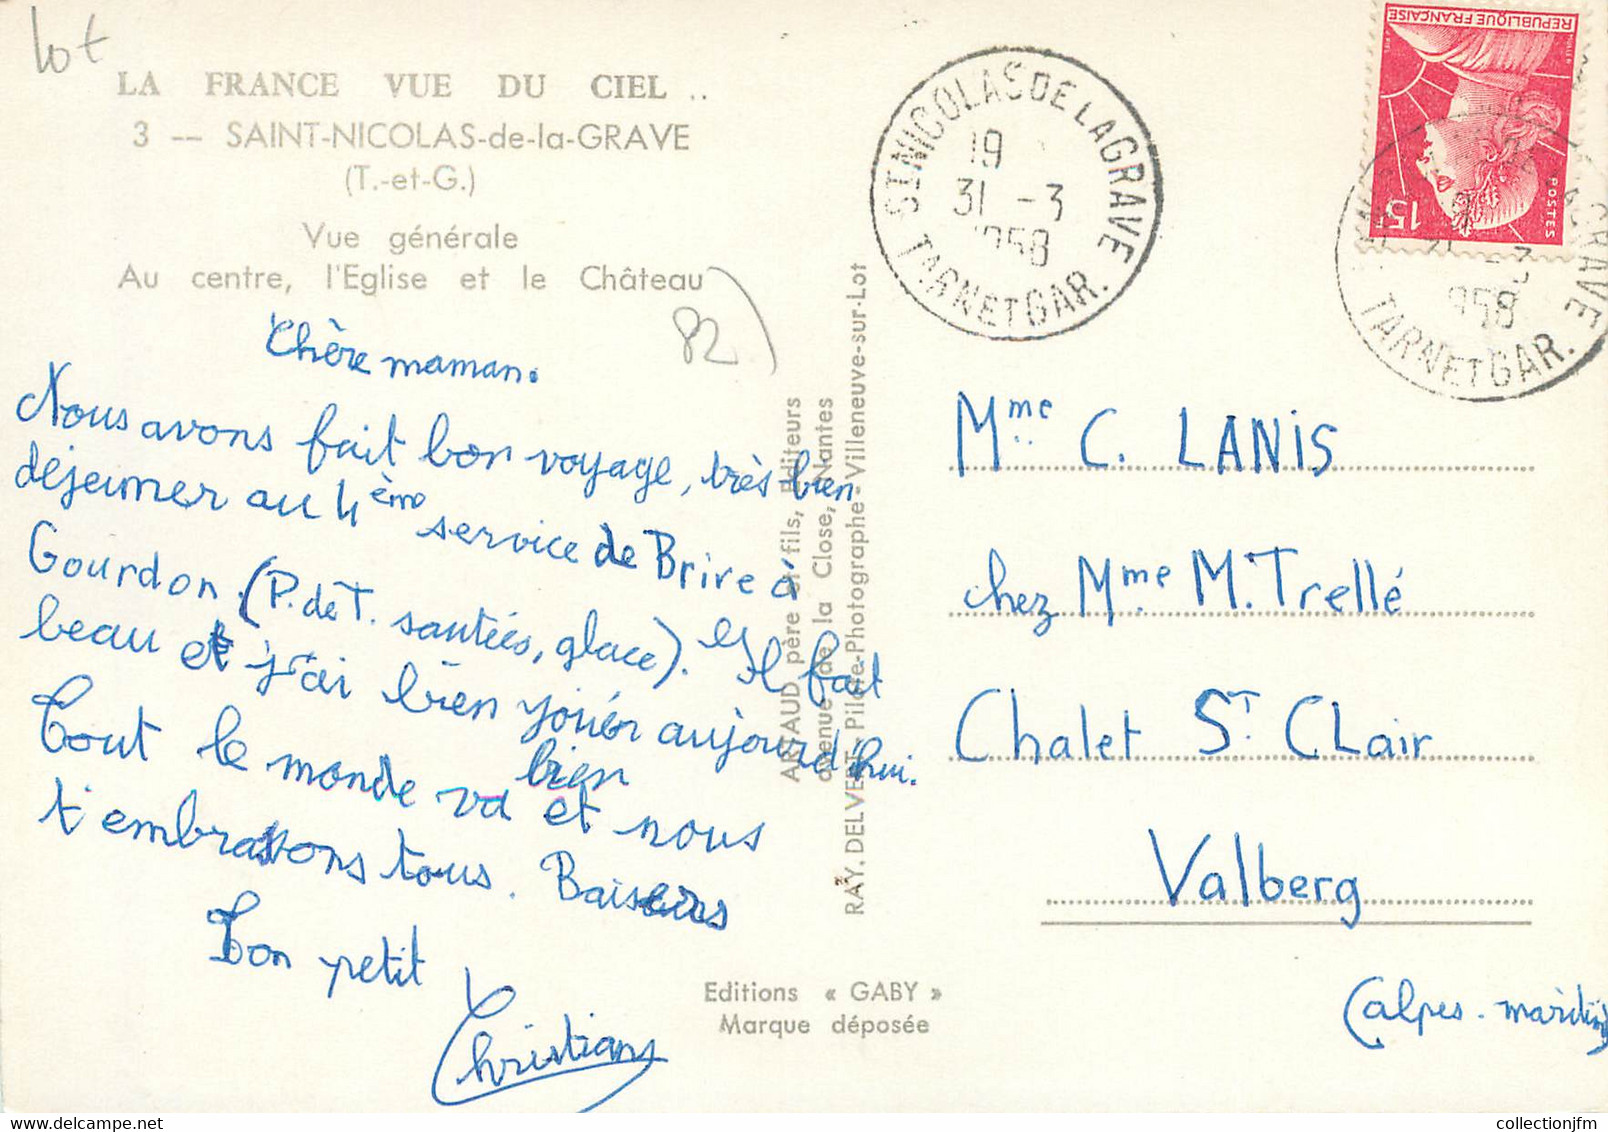 lot
LA FRANCE VUE DU CIEL ..
3 -- SAINT-NICOLAS-de-la-GRAVE
(T.-et-G.)
Vue générale
Au centre, l'Eglise et le Château
82
Chère maman.
Nous avons fait bon voyage, très bien
déjeuner au 4ème service de Brive à
Gourdon. (P. de T. sautées, glace). Il fait
beau et j'ai bien jouer aujourd'hui.
Tout le monde va bien et nous
t'embrassons tous. Baisers
Ton petit
Christian
ARTAUD père et fils, Editeurs
avenue de la Close, Nantes
RAY. DELVERT - Pilote-Photographe - Villeneuve-sur-Lot
Editions « GABY »
Marque déposée
ST NICOLAS DE LA GRAVE
19
31 -3
1958
TARN ET GAR.
REPUBLIQUE FRANÇAISE
POSTES
15F
GRAVE
3
958
TARN ET GAR.
Mme C. LANIS
chez Mme M. Trellé
Chalet ST CLair
Valberg
(alpes. maritimes)
collectionjfm